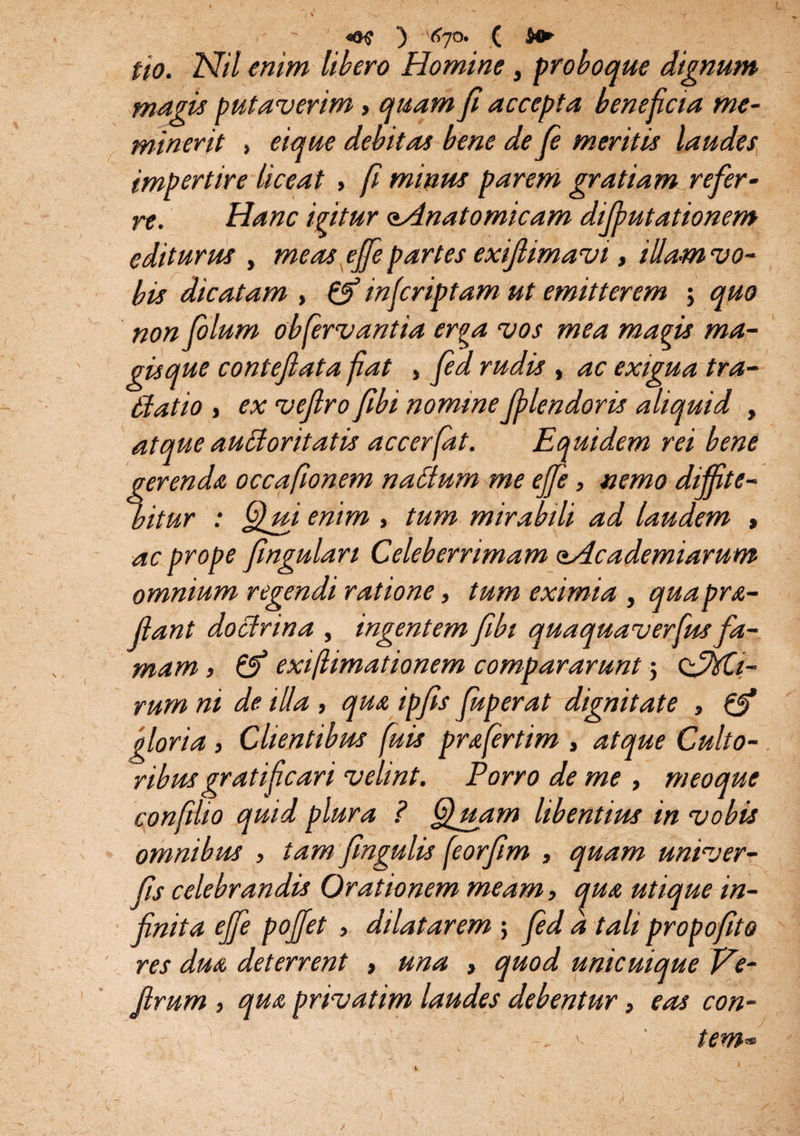 ) 670. (
tio. Nil enim libero Homine, proboque dignum
magis putaverim, quam ſi accepta beneficia me-
minerit, eique debitas bene de ſe meritis laudes
impertire liceat, ſi minus parem gratiam refer-
re. Hanc igitur Anatomicam diſputationem
editurus, meas eſſe partes exiſtimavi, illam vo-
bis dicatam, & inſcriptam ut emitterem; quo
non ſolum obſervantia erga vos mea magis ma-
gisque conteſtata fiat, ſed rudis, ac exigua tra-
ctatio, ex veſtro ſibi nomine ſplendoris aliquid,
atque auctoritatis accerſat. Equidem rei bene
gerendæ occaſionem nactum me eſſe, nemo diffite-
bitur: Qui enim, tum mirabili ad laudem,
ac prope ſingulari Celeberrimam Academiarum
omnium regendi ratione, tum eximia, qua præ-
ſtant doctrina, ingentem ſibi quaquaverſus fa-
mam, & exiſtimationem compararunt; Mi-
rum ni de illa, qua ipſis ſuperat dignitate, &
gloria, Clientibus ſuis præſertim, atque Culto-
ribus gratificari velint. Porro de me, meoque
conſilio quid plura? Quam libentius in vobis
omnibus, tam ſingulis ſeorſim, quam univer-
ſis celebrandis Orationem meam, quæ utique in-
finita eſſe poſſet, dilatarem; ſed à tali propoſito
res duæ deterrent, una, quod unicuique Ve-
ſtrum, quæ privatim laudes debentur, eas con-
tem-